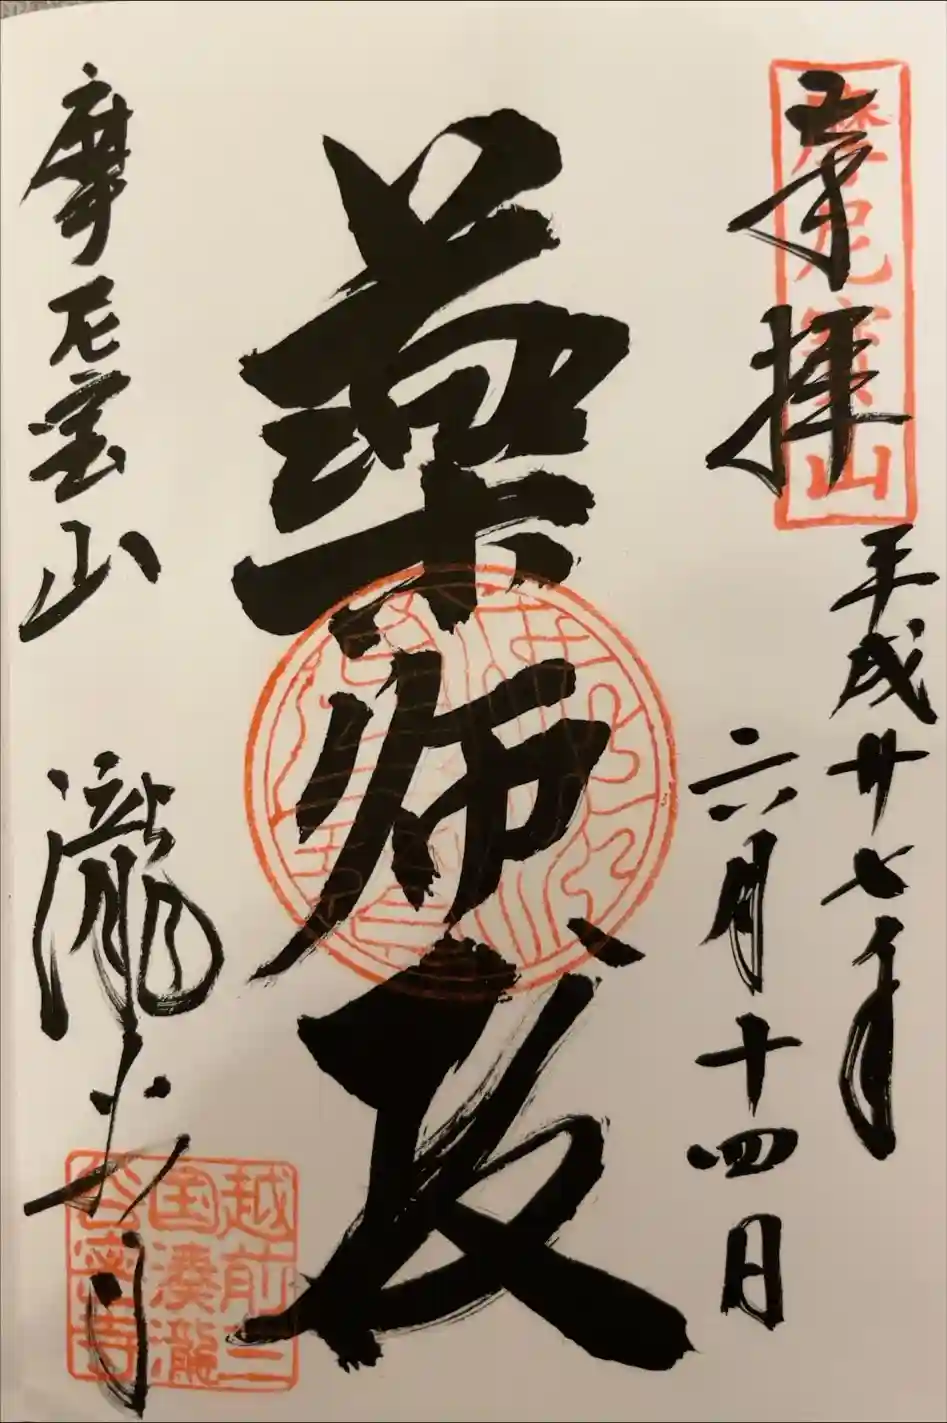 奉拝
摩尼宝山
平成廿七年
六月十四日
薬師殿
摩尼宝山
瀧谷寺
越前三
国湊瀧
谷密寺